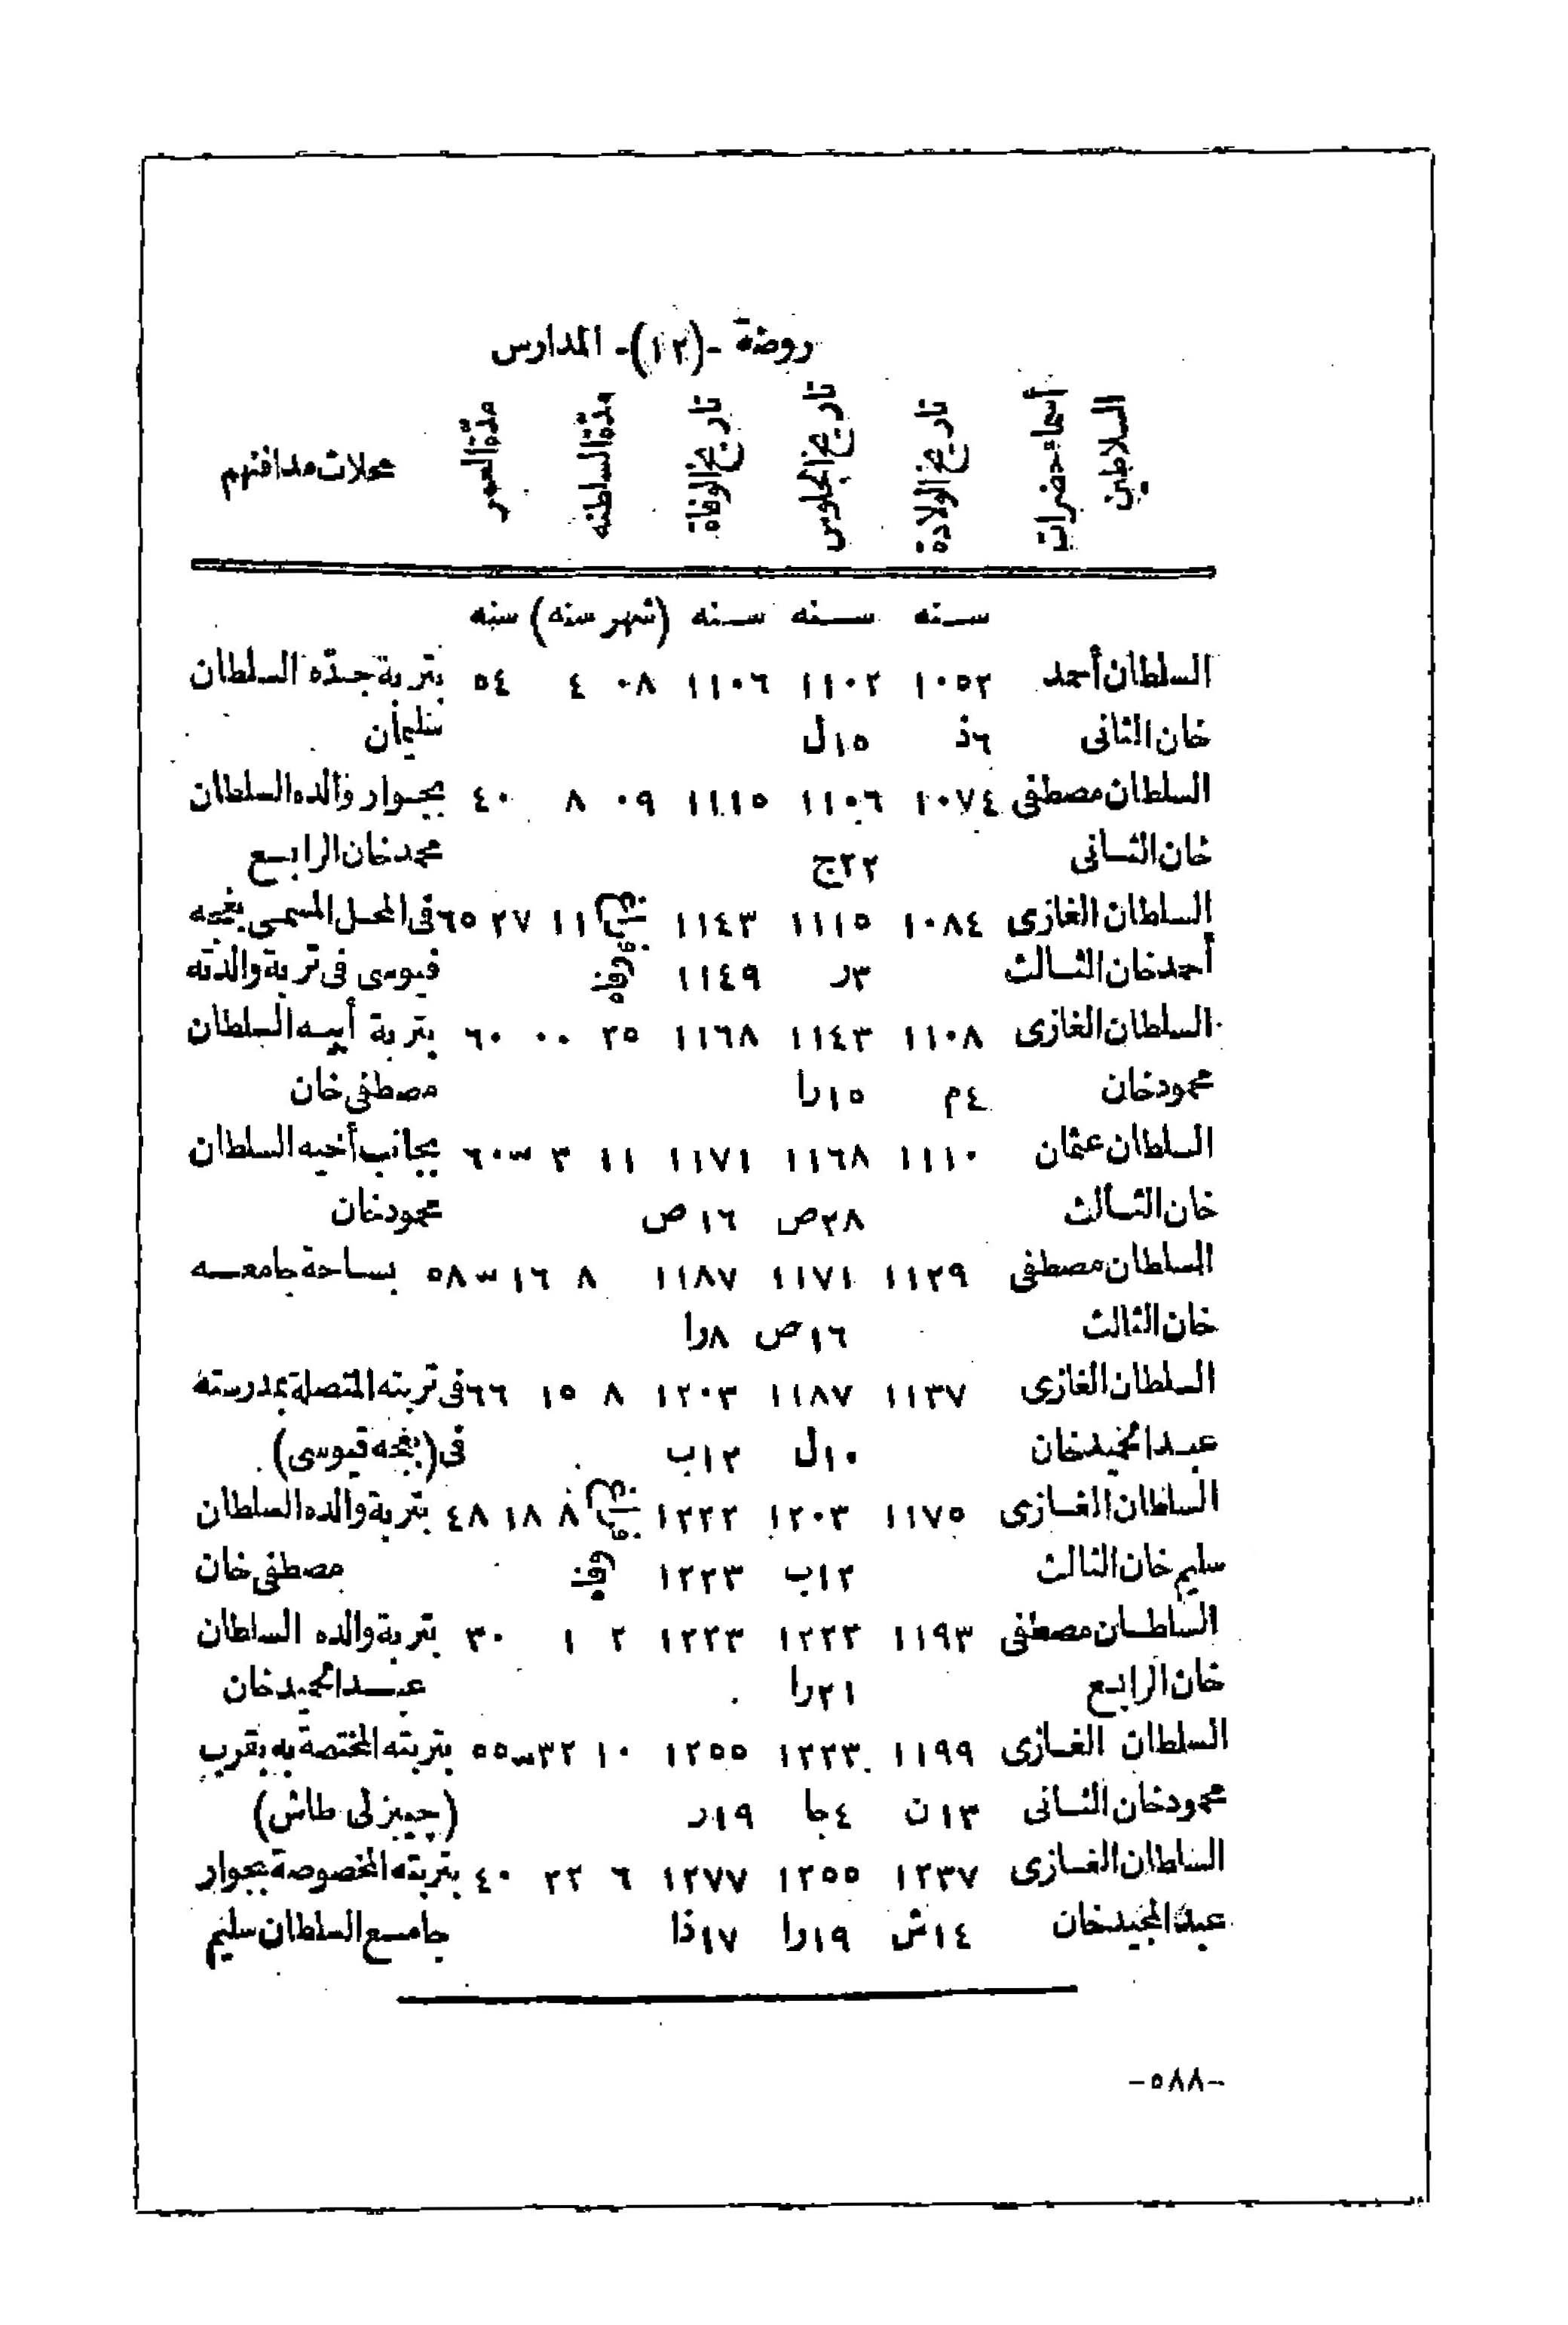 روضة -(١٢)- المدارس
أسماء حضرات السلاطين تاريخ الولادة تاريخ الجلوس تاريخ الوفاة مدّة السلطنه مدّة العمر محلات مدافنهم
سنه سنه سنه (شهر سنه) سنه
السلطان أحمد ١٠٥٢ ١١٠٢ ١١٠٦ ٠٨ ٤ ٥٤ بتربة جدّه السلطان
خان الثانى ٦ذ ١٥ل سليمان
السلطان مصطفى ١٠٧٤ ١١٠٦ ١١١٥ ٠٩ ٨ ٤٠ بجوار والده السلطان
خان الثانى ٢٢ج محمد خان الرابع
السلطان الغازى ١٠٨٤ ١١١٥ ١١٤٣ ١١ ٢٧ ٦٥ فى المحل المسمى بغجه
أحمد خان الثالث ٣ر ١١٤٩ وفاه قپوسى فى تربة والدته
السلطان الغازى ١١٠٨ ١١٤٣ ١١٦٨ ٢٥ ٠٠ ٦٠ بتربة أبيه السلطان
محمود خان ٤م ١٥را مصطفى خان
السلطان عثمان ١١١٠ ١١٦٨ ١١٧١ ١١ ٣ ٦٠ بجانب أخيه السلطان
خان الثالث ٢٨ص ١٦ص محمود خان
السلطان مصطفى ١١٢٩ ١١٧١ ١١٨٧ ٨ ١٦ ٥٨ بساحة جامعه
خان الثالث ١٦ص ٨را
السلطان الغازى ١١٣٧ ١١٨٧ ١٢٠٣ ٨ ١٥ ٦٦ فى تربته المتصلة بمدرسته
عبد الحميد خان ١٠ل ١٢ب فى (بغجه قپوسى)
السلطان الغازى ١١٧٥ ١٢٠٣ ١٢٢٢ ٨ ١٨ ٤٨ بتربة والده السلطان
سليم خان الثالث ١٢ب ١٢٢٣ وفاة مصطفى خان
السلطان مصطفى ١١٩٣ ١٢٢٢ ١٢٢٣ ٢ ١ ٣٠ بتربة والده السلطان
خان الرابع ٢١را عبد الحميد خان
السلطان الغازى ١١٩٩ ١٢٢٣ ١٢٥٥ ١٠ ٣٢ ٥٥ بتربته المختصة به بقرب
محمود خان الثانى ١٣ن ٤جا ١٩ر (چمبرلى طاش)
السلطان الغازى ١٢٣٧ ١٢٥٥ ١٢٧٧ ٦ ٢٢ ٤٠ بتربته المخصوصة بجوار
عبد المجيد خان ١٤ش ١٩را ١٧ذا جامع السلطان سليم
-٥٨٨-